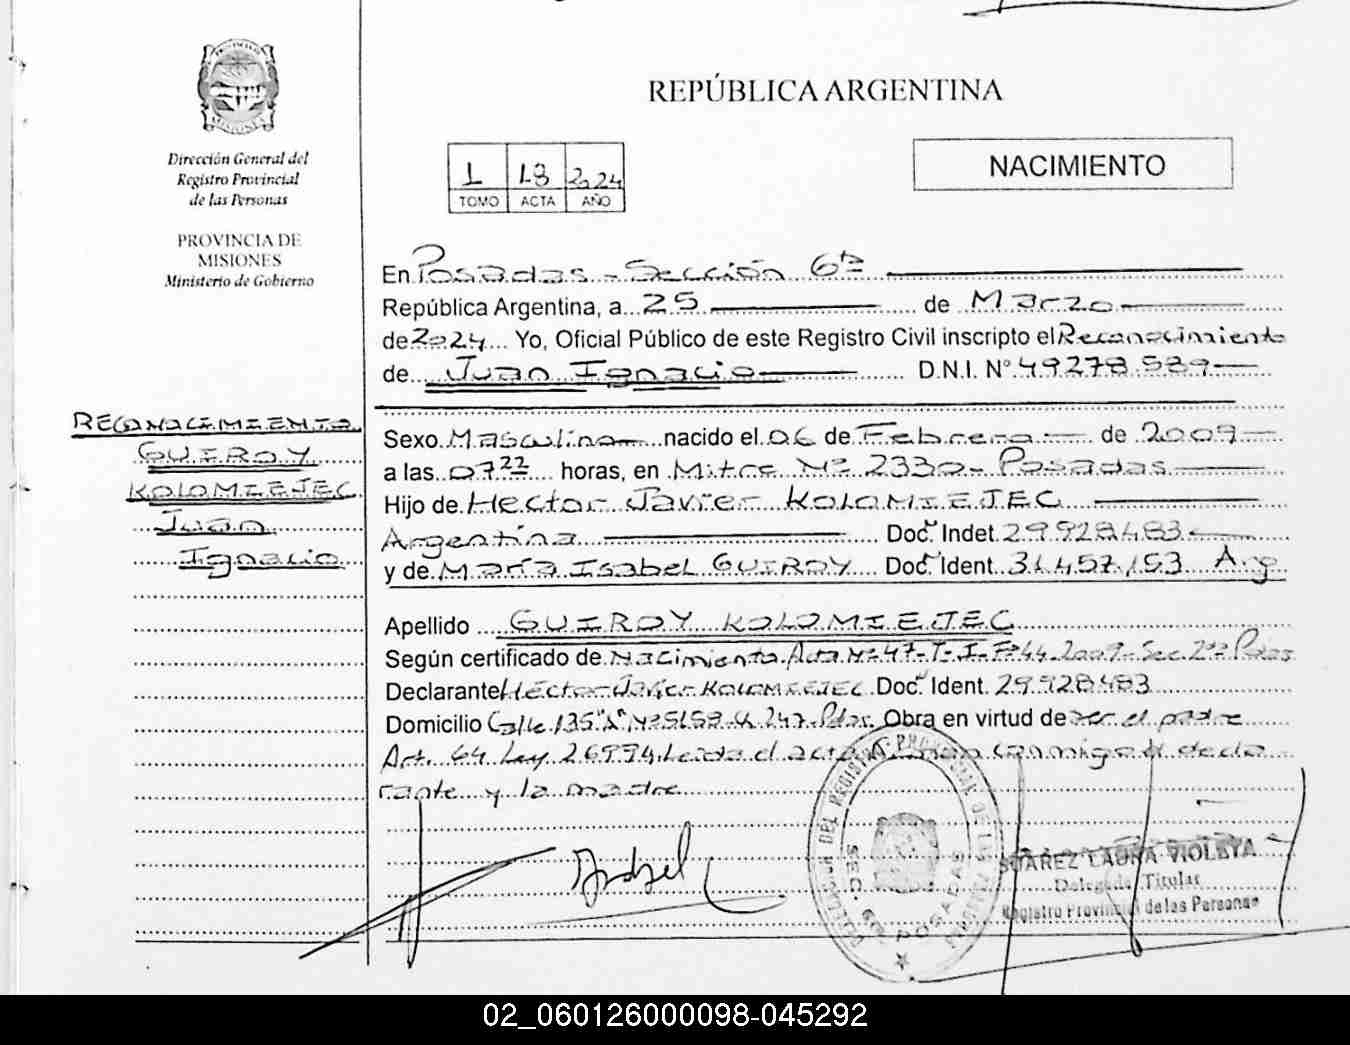 PROVINCIA
MISIONES
Dirección General del
Registro Provincial
de las Personas
PROVINCIA DE
MISIONES
Ministerio de Gobierno
REPÚBLICA ARGENTINA
1 18 2024
TOMO ACTA AÑO
NACIMIENTO
En Posadas - Sección 6ta
República Argentina, a 25 de Marzo
de 2024 Yo, Oficial Público de este Registro Civil inscripto el Reconocimiento
de Juan Ignacio D.N.I. N° 49278.589
RECONOCIMIENTO
GUIROY
KOLOMIEJEC
Juan
Ignacio
Sexo Masculino nacido el 06 de Febrero de 2009
a las 07 22 horas, en Mitre Nº 2330 - Posadas
Hijo de Hector Javier KOLOMIEJEC
Argentina Doc. Indet. 29.928.483
y de María Isabel GUIROY Doc. Ident. 31.457.153 Arg
Apellido GUIROY KOLOMIEJEC
Según certificado de Nacimiento Acta Nº 47-T-I-Fº 44.2009- Sec 2da Pdas
Declarante Héctor Javier KOLOMIEJEC Doc. Ident. 29.928.483
Domicilio Calle 135"A" Nº 5158 - 247- Pdas. Obra en virtud de ser el padre
Art. 64 Ley 26994. Leida el acta conmigo el decla
rante y la madre
SEC. 6ta POSADAS
SUAREZ LAURA VIOLETA
Delegada Titular
Registro Provincial de las Personas
02_060126000098-045292